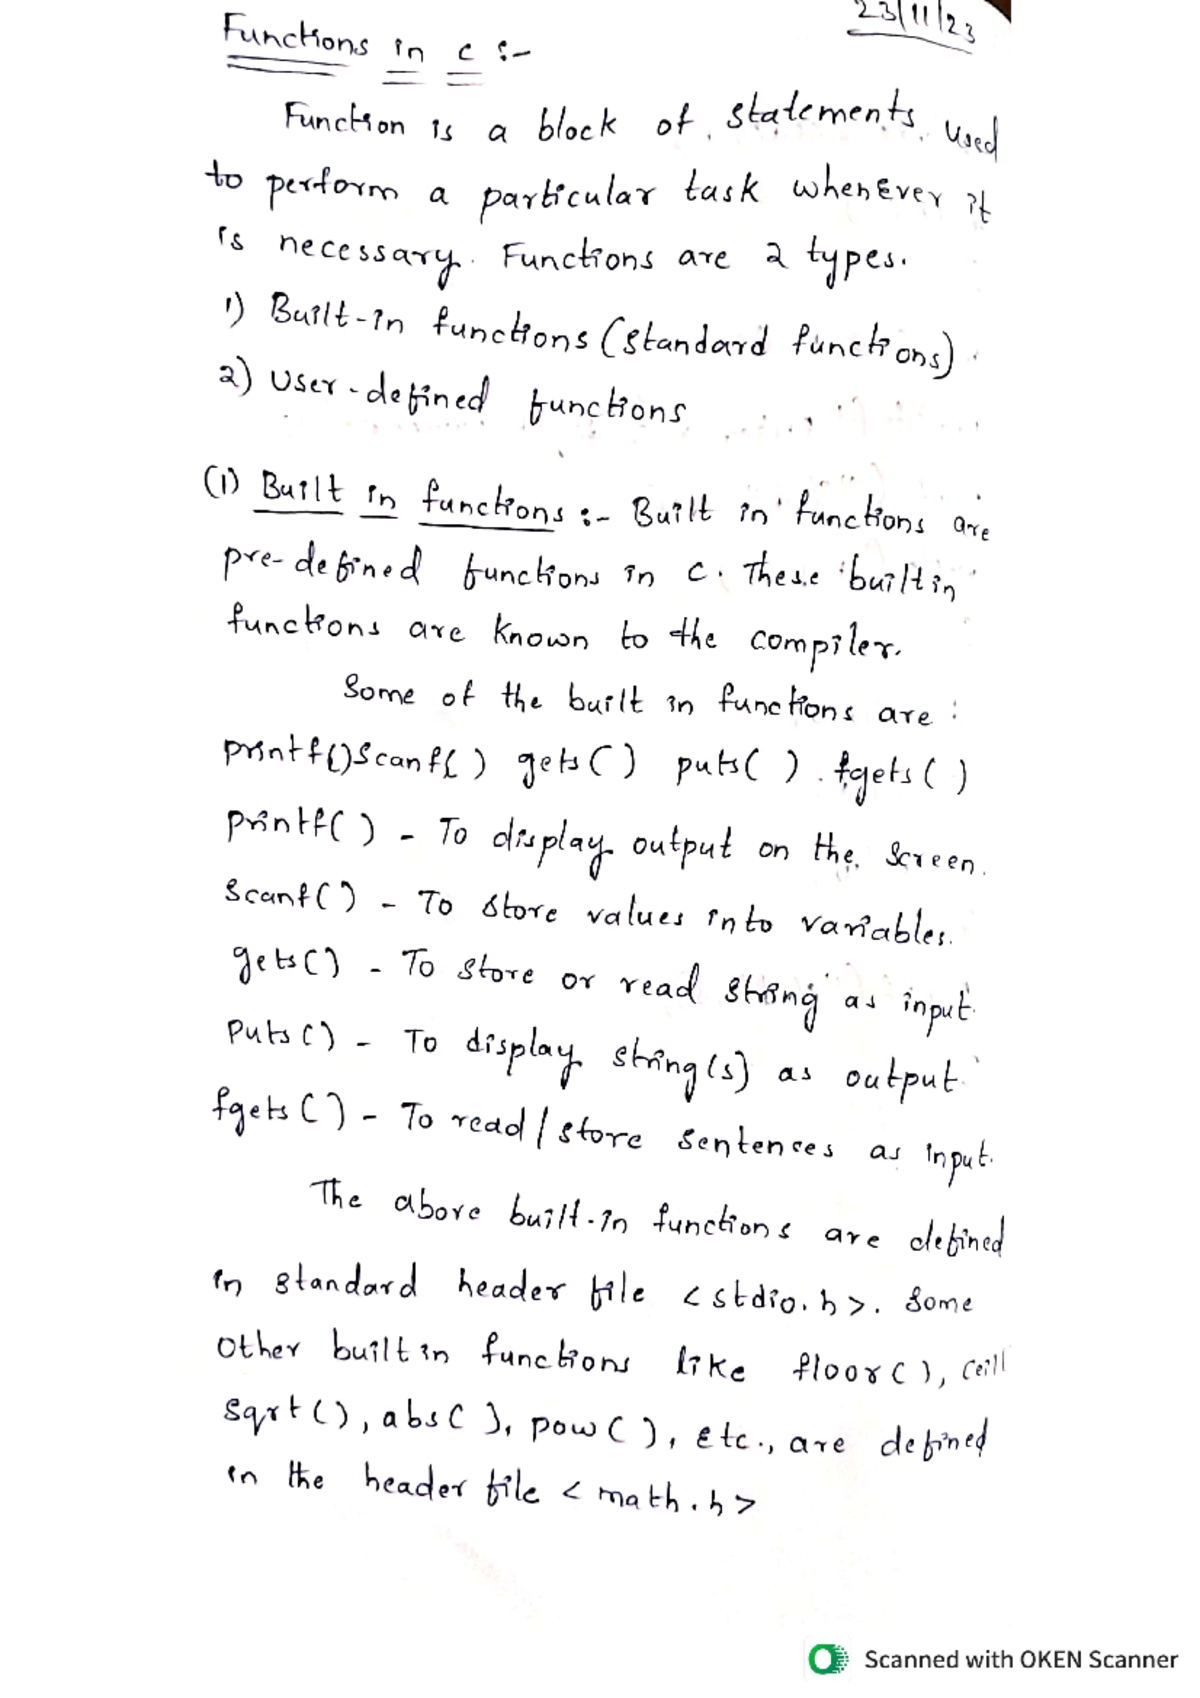 23/11/23
Functions in c :-
Function is a block of statements used
to perform a particular task whenEver it
is necessary. Functions are 2 types.
1) Built-in functions (standard functions)
2) User-defined functions
(1) Built in functions :- Built in functions are
pre-defined functions in c. These builtin
functions are known to the compiler.
Some of the built in functions are :
printf()Scanf() gets() puts() fgets()
printf() - To display output on the Screen.
Scanf() - To store values into variables.
gets() - To store or read string as input.
Puts() - To display string(s) as output.
fgets() - To read/store sentences as input.
The above built-in functions are defined
in standard header file <stdio.h>. Some
Other built in functions like floor(), Ceill
Sqrt(), abs(), pow(), Etc., are defined
in the header file <math.h>
Scanned with OKEN Scanner